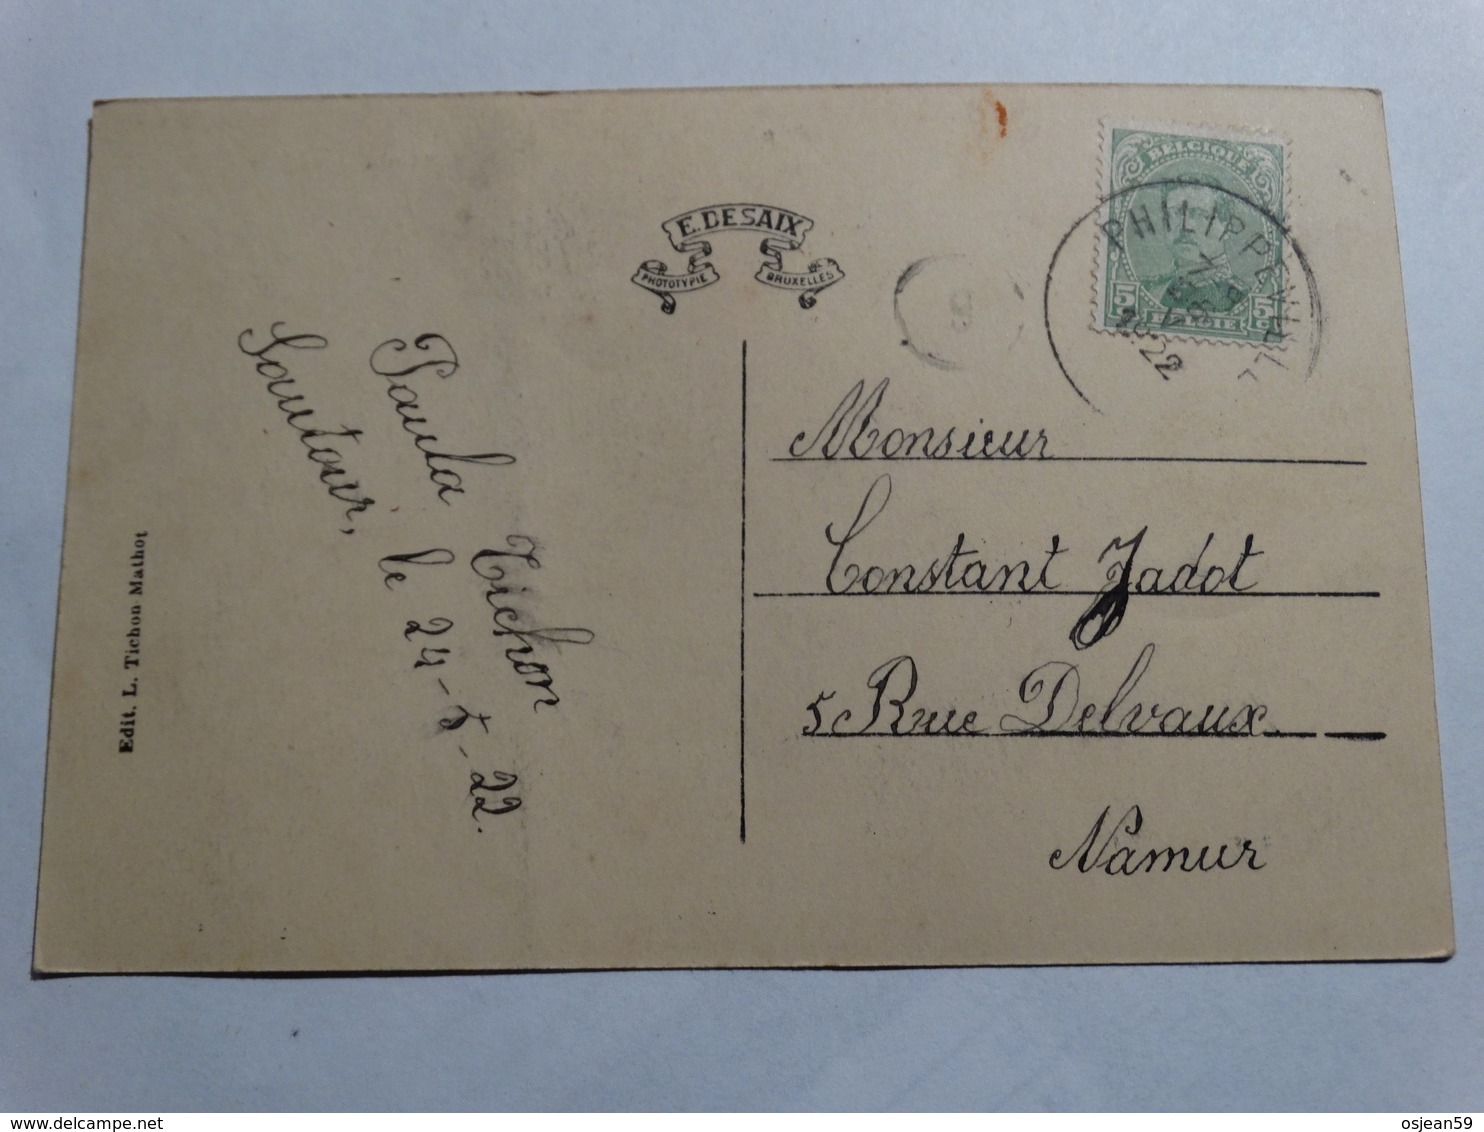 E. DESAIX
PHOTOTYPIE BRUXELLES
BELGIQUE
5 5c
BELGIË
PHILIPPEVILLE
22
8
Paula Tichon
Sautour, le 24-5-22.
Edit. L. Tichon Mathot
Monsieur
Constant Jadot
5 Rue Delvaux
Namur
delcampe.net
osjean59